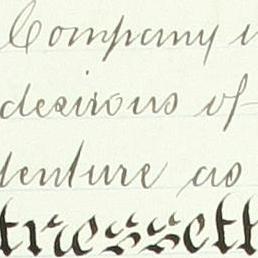 Company i
desirous of
denture as
tnesseth